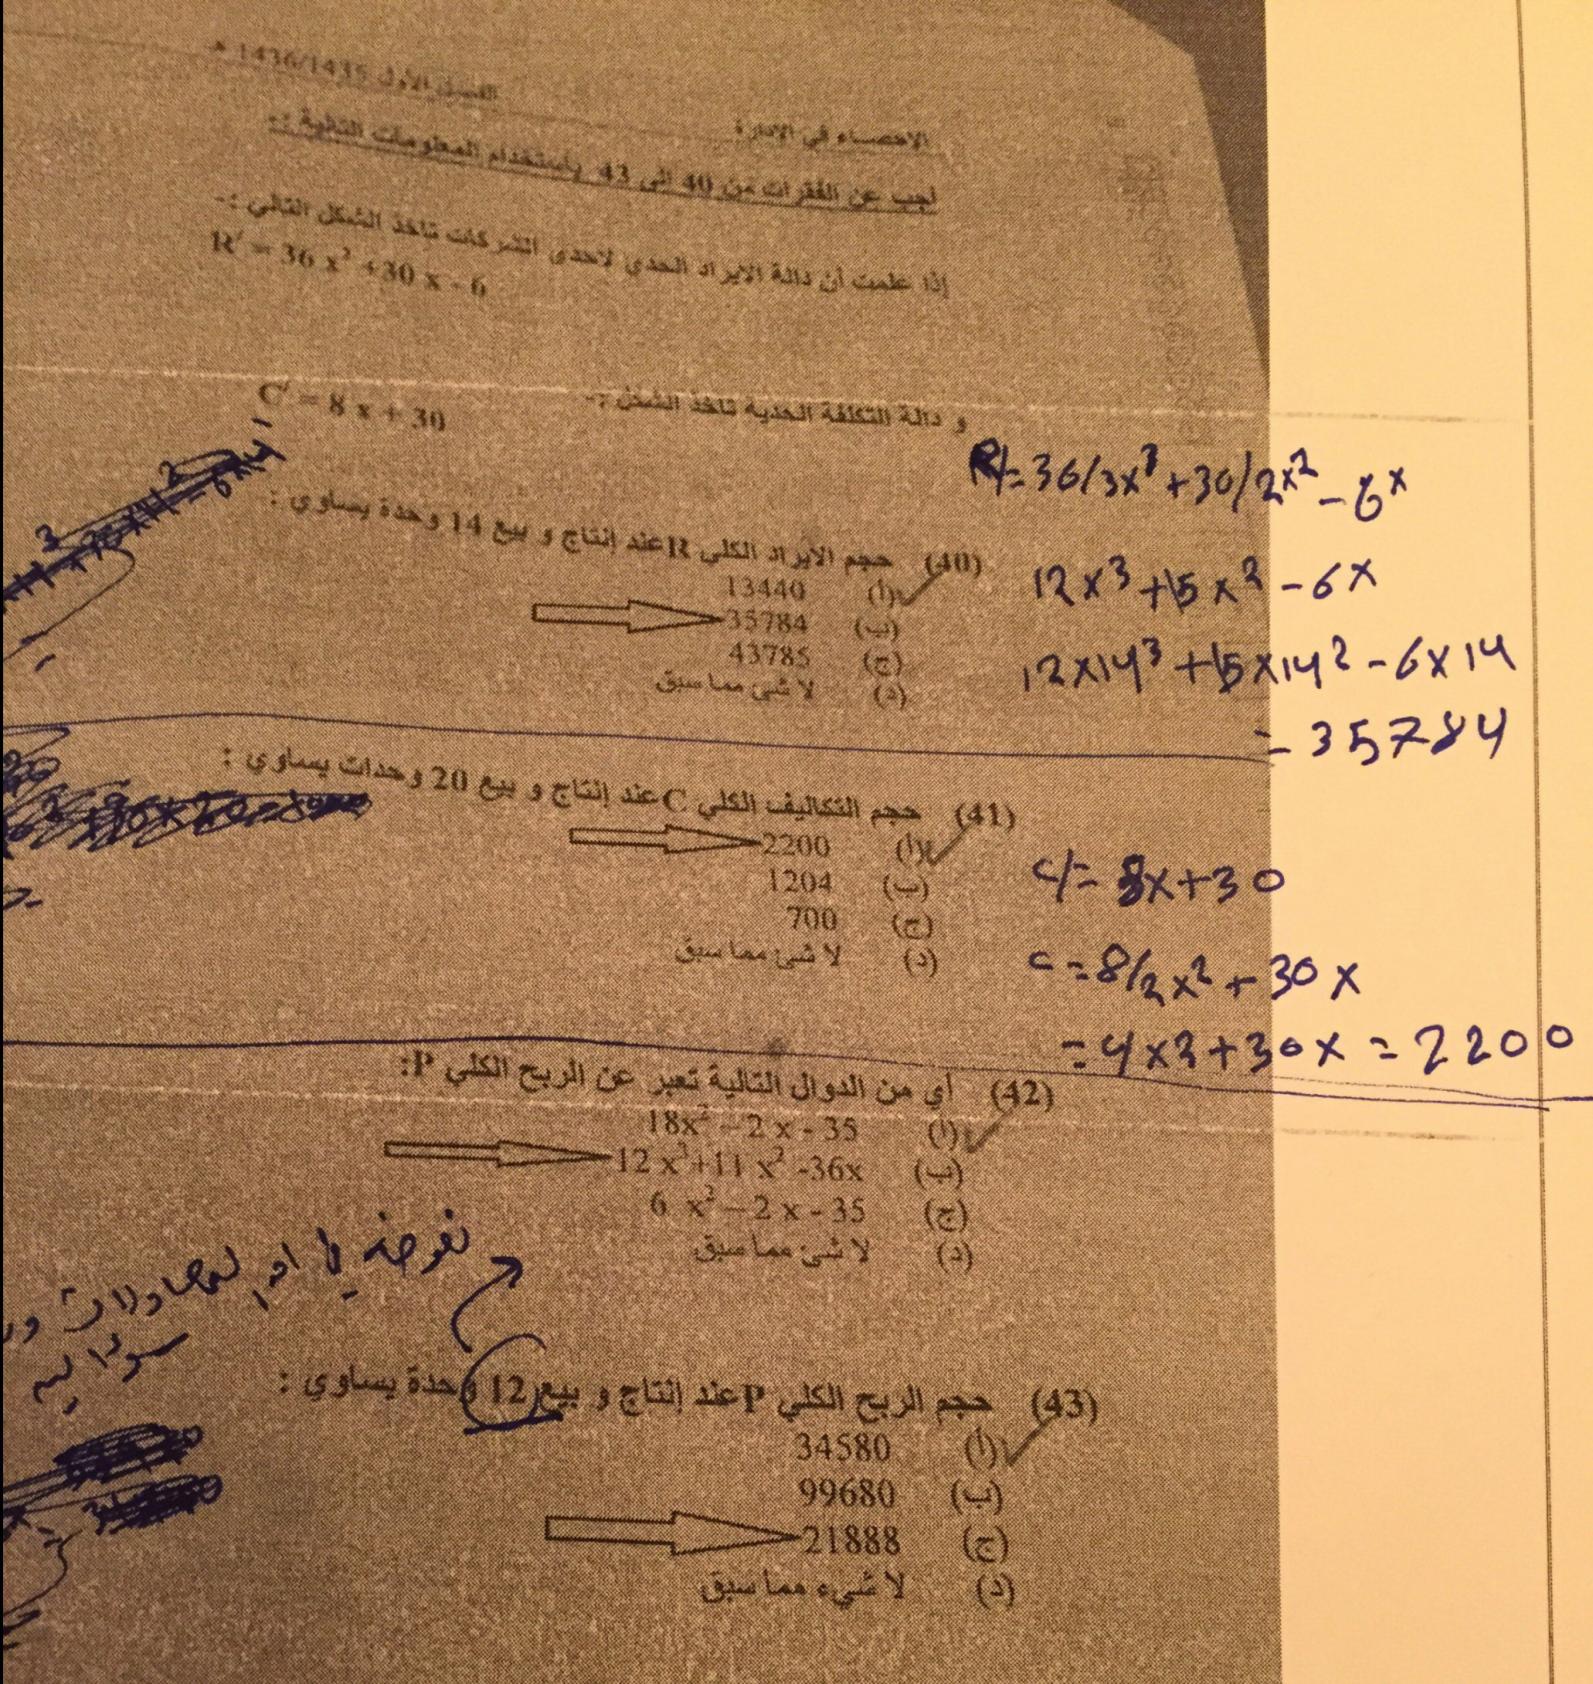 الفصل الأول 1436/1435 هـ
الإحصاء في الإدارة
أجب عن الفقرات من 40 الى 43 باستخدام المعلومات التالية :-
إذا علمت أن دالة الايراد الحدي لاحدى الشركات تاخذ الشكل التالي :-
R' = 36 x² +30 x - 6
و دالة التكلفة الحدية تاخذ الشكل :-
C' = 8 x + 30
R/= 36/3x³ + 30/2x² - 6x
(40) حجم الايراد الكلي R عند إنتاج و بيع 14 وحدة يساوي :
(أ) 13440
12x³ + 15x² - 6x
(ب) 35784
(ج) 43785
12x14³ + 15x14² - 6x14
(د) لا شئ مما سبق
= 35784
(41) حجم التكاليف الكلي C عند إنتاج و بيع 20 وحدات يساوي :
(أ) 2200
(ب) 1204
c/= 8x+30
(ج) 700
(د) لا شئ مما سبق
c = 8/2x² + 30x
= 4x2+30x = 2200
(42) أي من الدوال التالية تعبر عن الربح الكلي P:
(أ) 18x² – 2 x - 35
(ب) 12 x³+11 x² -36x
(ج) 6 x² – 2 x - 35
(د) لا شئ مما سبق
(43) حجم الربح الكلي P عند إنتاج و بيع 12 وحدة يساوي :
(أ) 34580
(ب) 99680
(ج) 21888
(د) لا شيء مما سبق